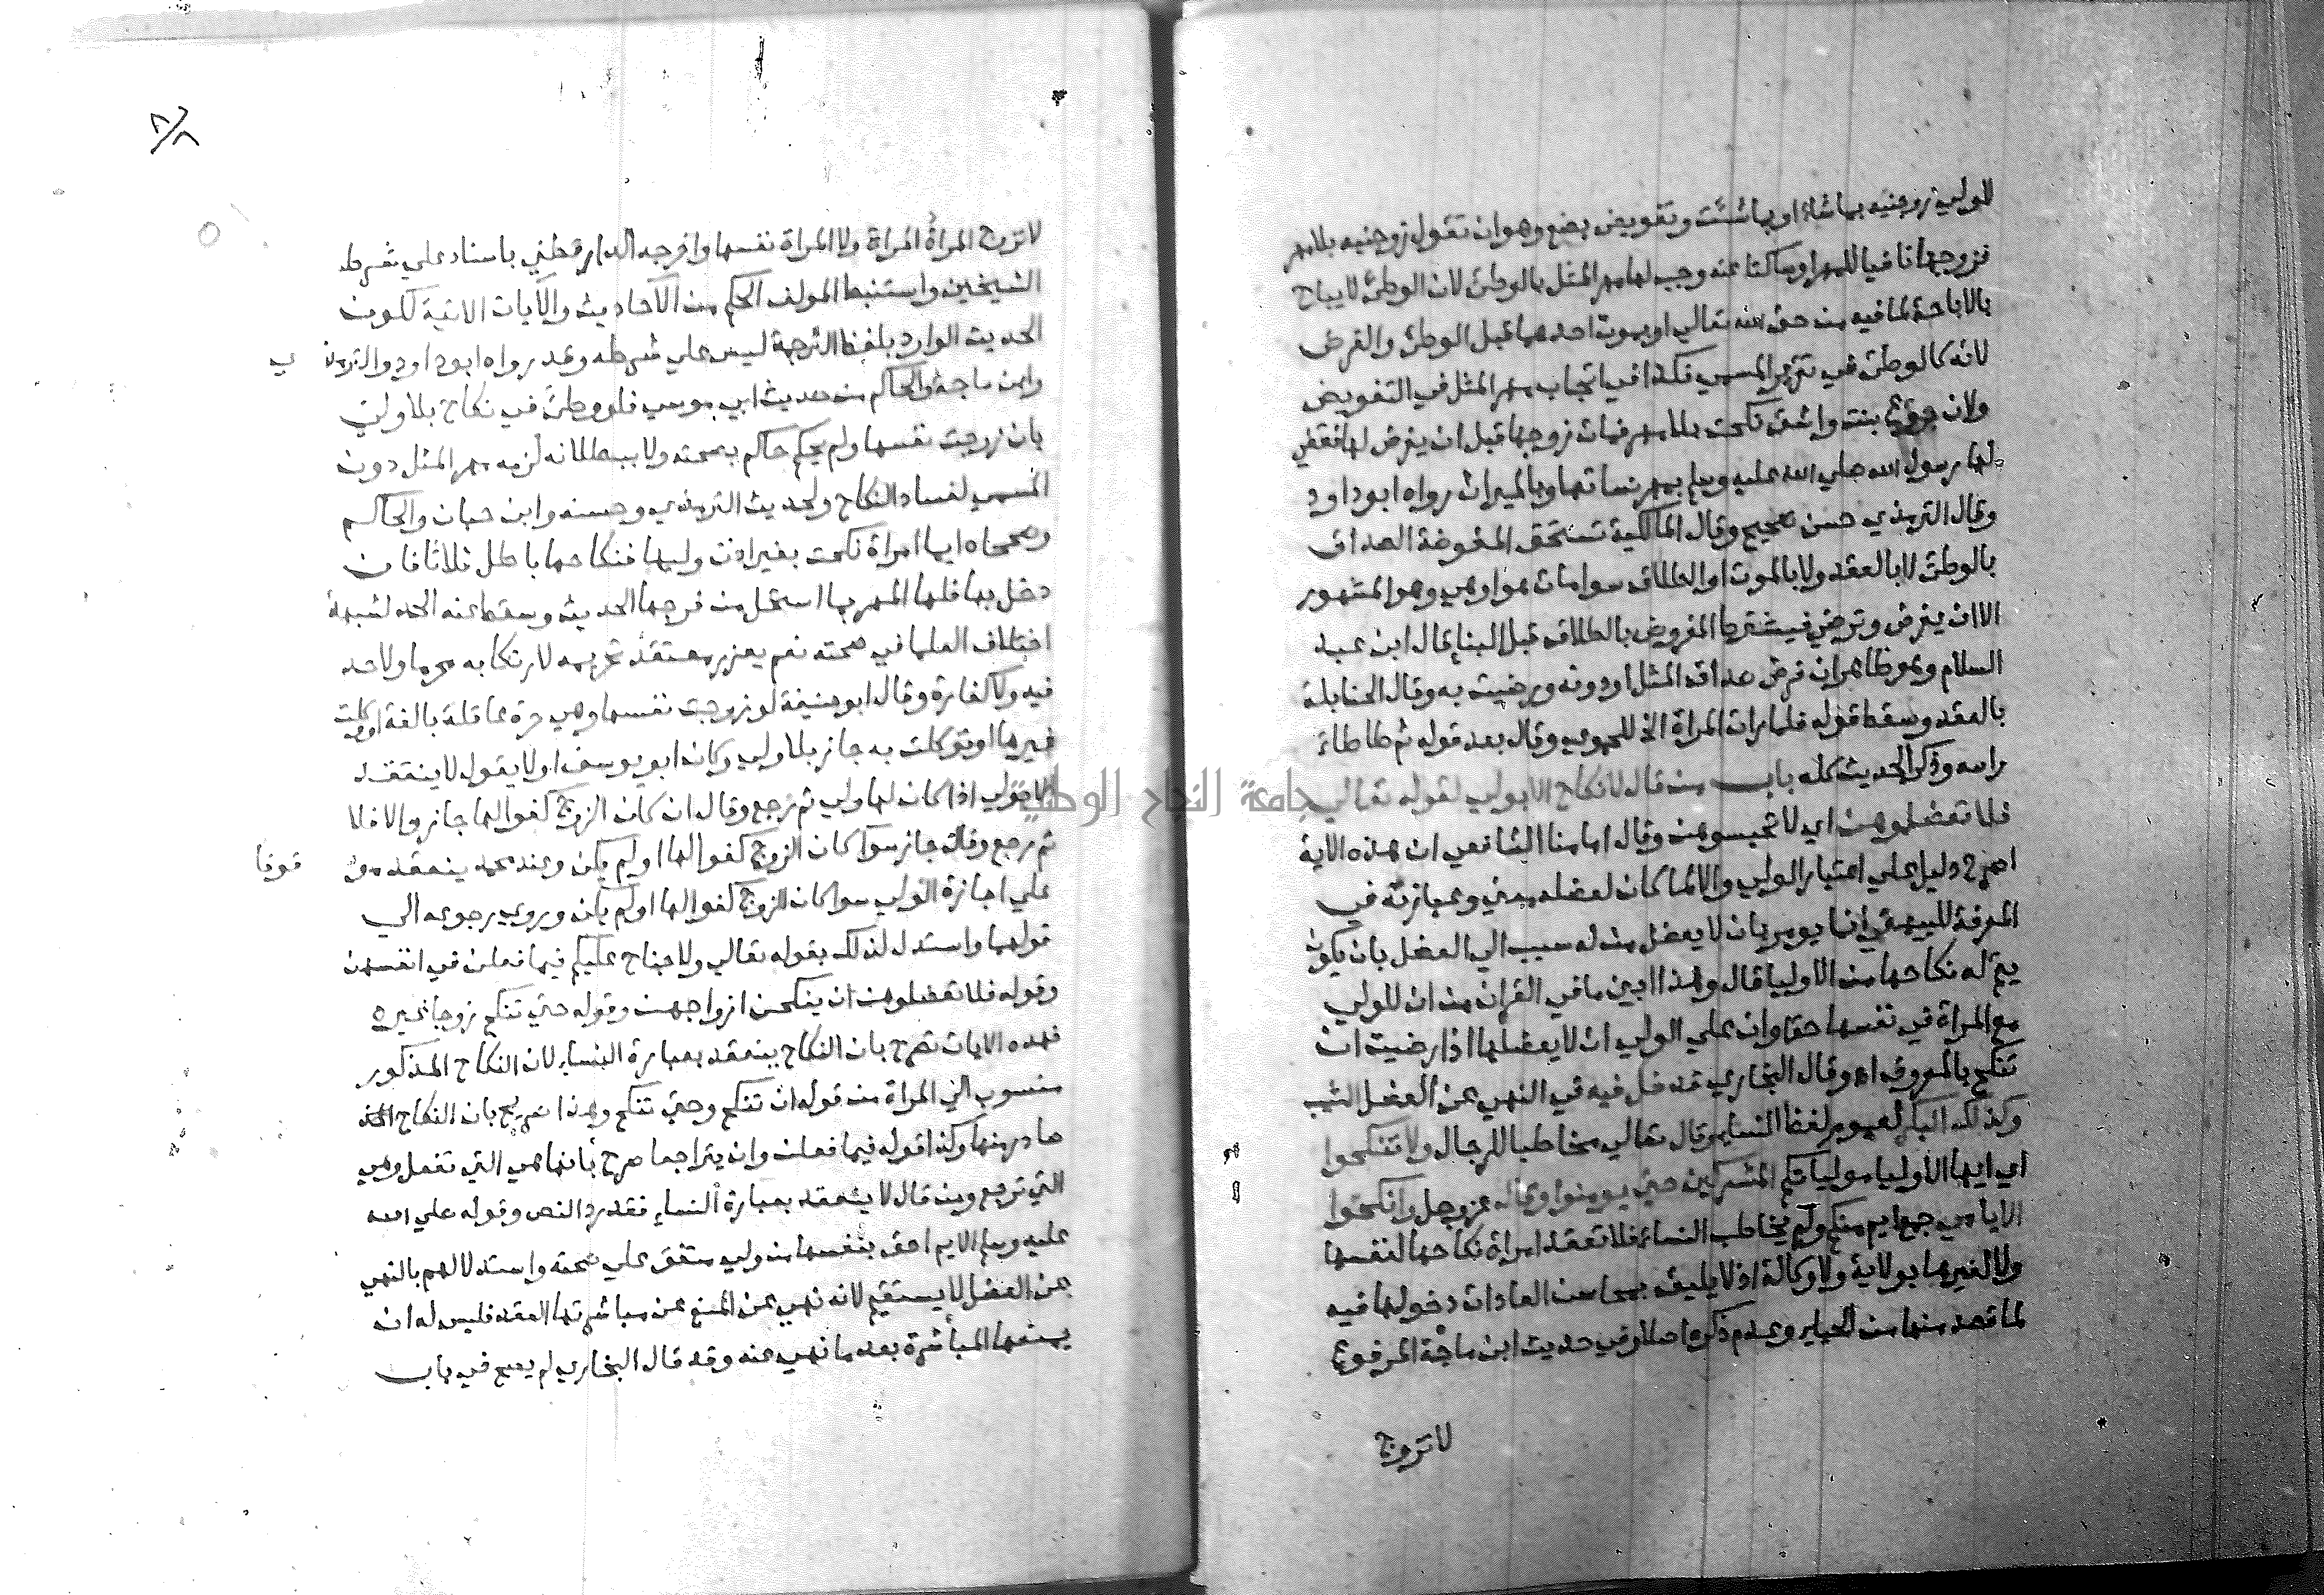 للولي زوجنيه بما شاء او بما شئت وتفويض بضع وهو ان تقول زوجنيه بلا مهر
فزوجها نافيا للمهر او ساكتا عنه وجب لها مهر المثل بالوطئ لان الوطئ لا يباح
بالاباحة لما فيه من حق الله تعالي او بموت احدهما قبل الوطئ والفرض
لانه كالوطئ في تقرير المسمي فكذا في ايجاب مهر المثل في التفويض
ولان بروع بنت واشق نكحت بلا مهر فمات زوجها قبل ان يفرض لها فقضي
لها رسول الله صلي الله عليه وسلم بمهر نسائها وبالميراث رواه ابو داود
وقال الترمذي حسن صحيح وقال المالكية تستحق المفوضة الصداق
بالوطئ لا بالعقد ولا بالموت او الطلاق سوا مات هو او هي وهو المشهور
الا ان يفرض وترضي فيشطر المفروض بالطلاق قبل البناء قال ابن عبد
السلام وهو ظاهر ان فرض صداق المثل او دونه ورضيت به وقال الحنابلة
بالعقد وسقط قوله فلما رات المراة الخ للحموي وقال بعد قوله ثم طاطاء
راسه وذكر الحديث كله باب من قال لا نكاح الا بولي لقوله تعالي
فلا تعضلوهن اي لا تحبسوهن وقال امامنا الشافعي ان هذه الاية
اصرح دليل علي اعتبار الولي والا لما كان لعضله معني وعبارته في
المعرفة للبيهقي انما يومر بان لا يعضل من له سبب الي العضل بان يكون
يتم له نكاحها من الاوليا قال وهذا ابين ما في القران من ان للولي
مع المراة في نفسها حقا وان علي الولي ان لا يعضلها اذا رضيت ان
تنكح بالمعروف اه وقال البخاري فدخل فيه في النهي عن العضل الثيب
وكذلك البكر لعموم لفظ النساء وقال تعالي مخاطبا للرجال ولا تنكحوا
اي ايها الاوليا مولياتكم المشركين حتي يومنوا وقال عز وجل وانكحوا
الايامي جمع ايم منكم ولم يخاطب النساء فلا تعقد امراة نكاحها لنفسها
ولا لغيرها بولاية ولا وكالة اذ لا يليق بمحاسن العادات دخولها فيه
لما قصد منها من الحياء وعدم ذكره اصلا وفي حديث ابن ماجة المرفوع
لا تزوج
لا تزوج المراة المراة ولا المراة نفسها واخرجه الدارقطني باسناد علي شرط
الشيخين واستنبط المولف الحكم من الاحاديث والايات الاتية لكون
الحديث الوارد بلفظ الترجمة ليس علي شرطه وقد رواه ابو داود والترمذي
وابن ماجة والحاكم من حديث ابي موسي فلو وطئ في نكاح بلا ولي
بان زوجت نفسها ولم يحكم حاكم بصحته ولا ببطلانه لزمه مهر المثل دون
المسمي لفساد النكاح ولحديث الترمذي وحسنه وابن حبان والحاكم
وصححاه ايما امراة نكحت بغير اذن وليها فنكاحها باطل ثلاثا فان
دخل بها فلها المهر بما استحل من فرجها الحديث وسقط عنه الحد لشبهة
اختلاف العلما في صحته نعم يعزر معتقد تحريمه لارتكابه محرما ولا حد
فيه ولا كفارة وقال ابو حنيفة لو زوجت نفسها وهي حرة عاقلة بالغة او وكلت
غيرها او توكلت به جاز بلا ولي وكان ابو يوسف اولا يقول لا ينعقد
الا بولي اذا كان لها ولي ثم رجع وقال ان كان الزوج كفوا لها جاز والا فلا
ثم رجع وقال جاز سوا كان الزوج كفوا لها او لم يكن وعند محمد ينعقد موقوفا
علي اجازة الولي سوا كان الزوج كفوا لها او لم يكن وروي رجوعه الي
قولهما واستدل لذلك بقوله تعالي ولا جناح عليكم فيما فعلن في انفسهن
وقوله فلا تعضلوهن ان ينكحن ازواجهن وقوله حتي تنكح زوجا غيره
فهذه الايات تصرح بان النكاح ينعقد بعبارة النساء لان النكاح المذكور
منسوب الي المراة من قوله ان تنكح وحتي تنكح وهذا صريح بان النكاح
صادر منها وكذا قوله فيما فعلن وان يتراجعا صرح بانها هي التي تفعل وهي
التي ترجع ومن قال لا ينعقد بعبارة النساء فقد رد النص وقوله صلي الله
عليه وسلم الايم احق بنفسها من وليها متفق علي صحته واستدلالهم بالنهي
عن العضل لا يستقيم لانه نهي عن المنع عن مباشرتها العقد فليس له ان
يمنعها المباشرة بعد ما نهي عنه وقد قال البخاري لم يصح في باب
جامعة النجاح الوطنية